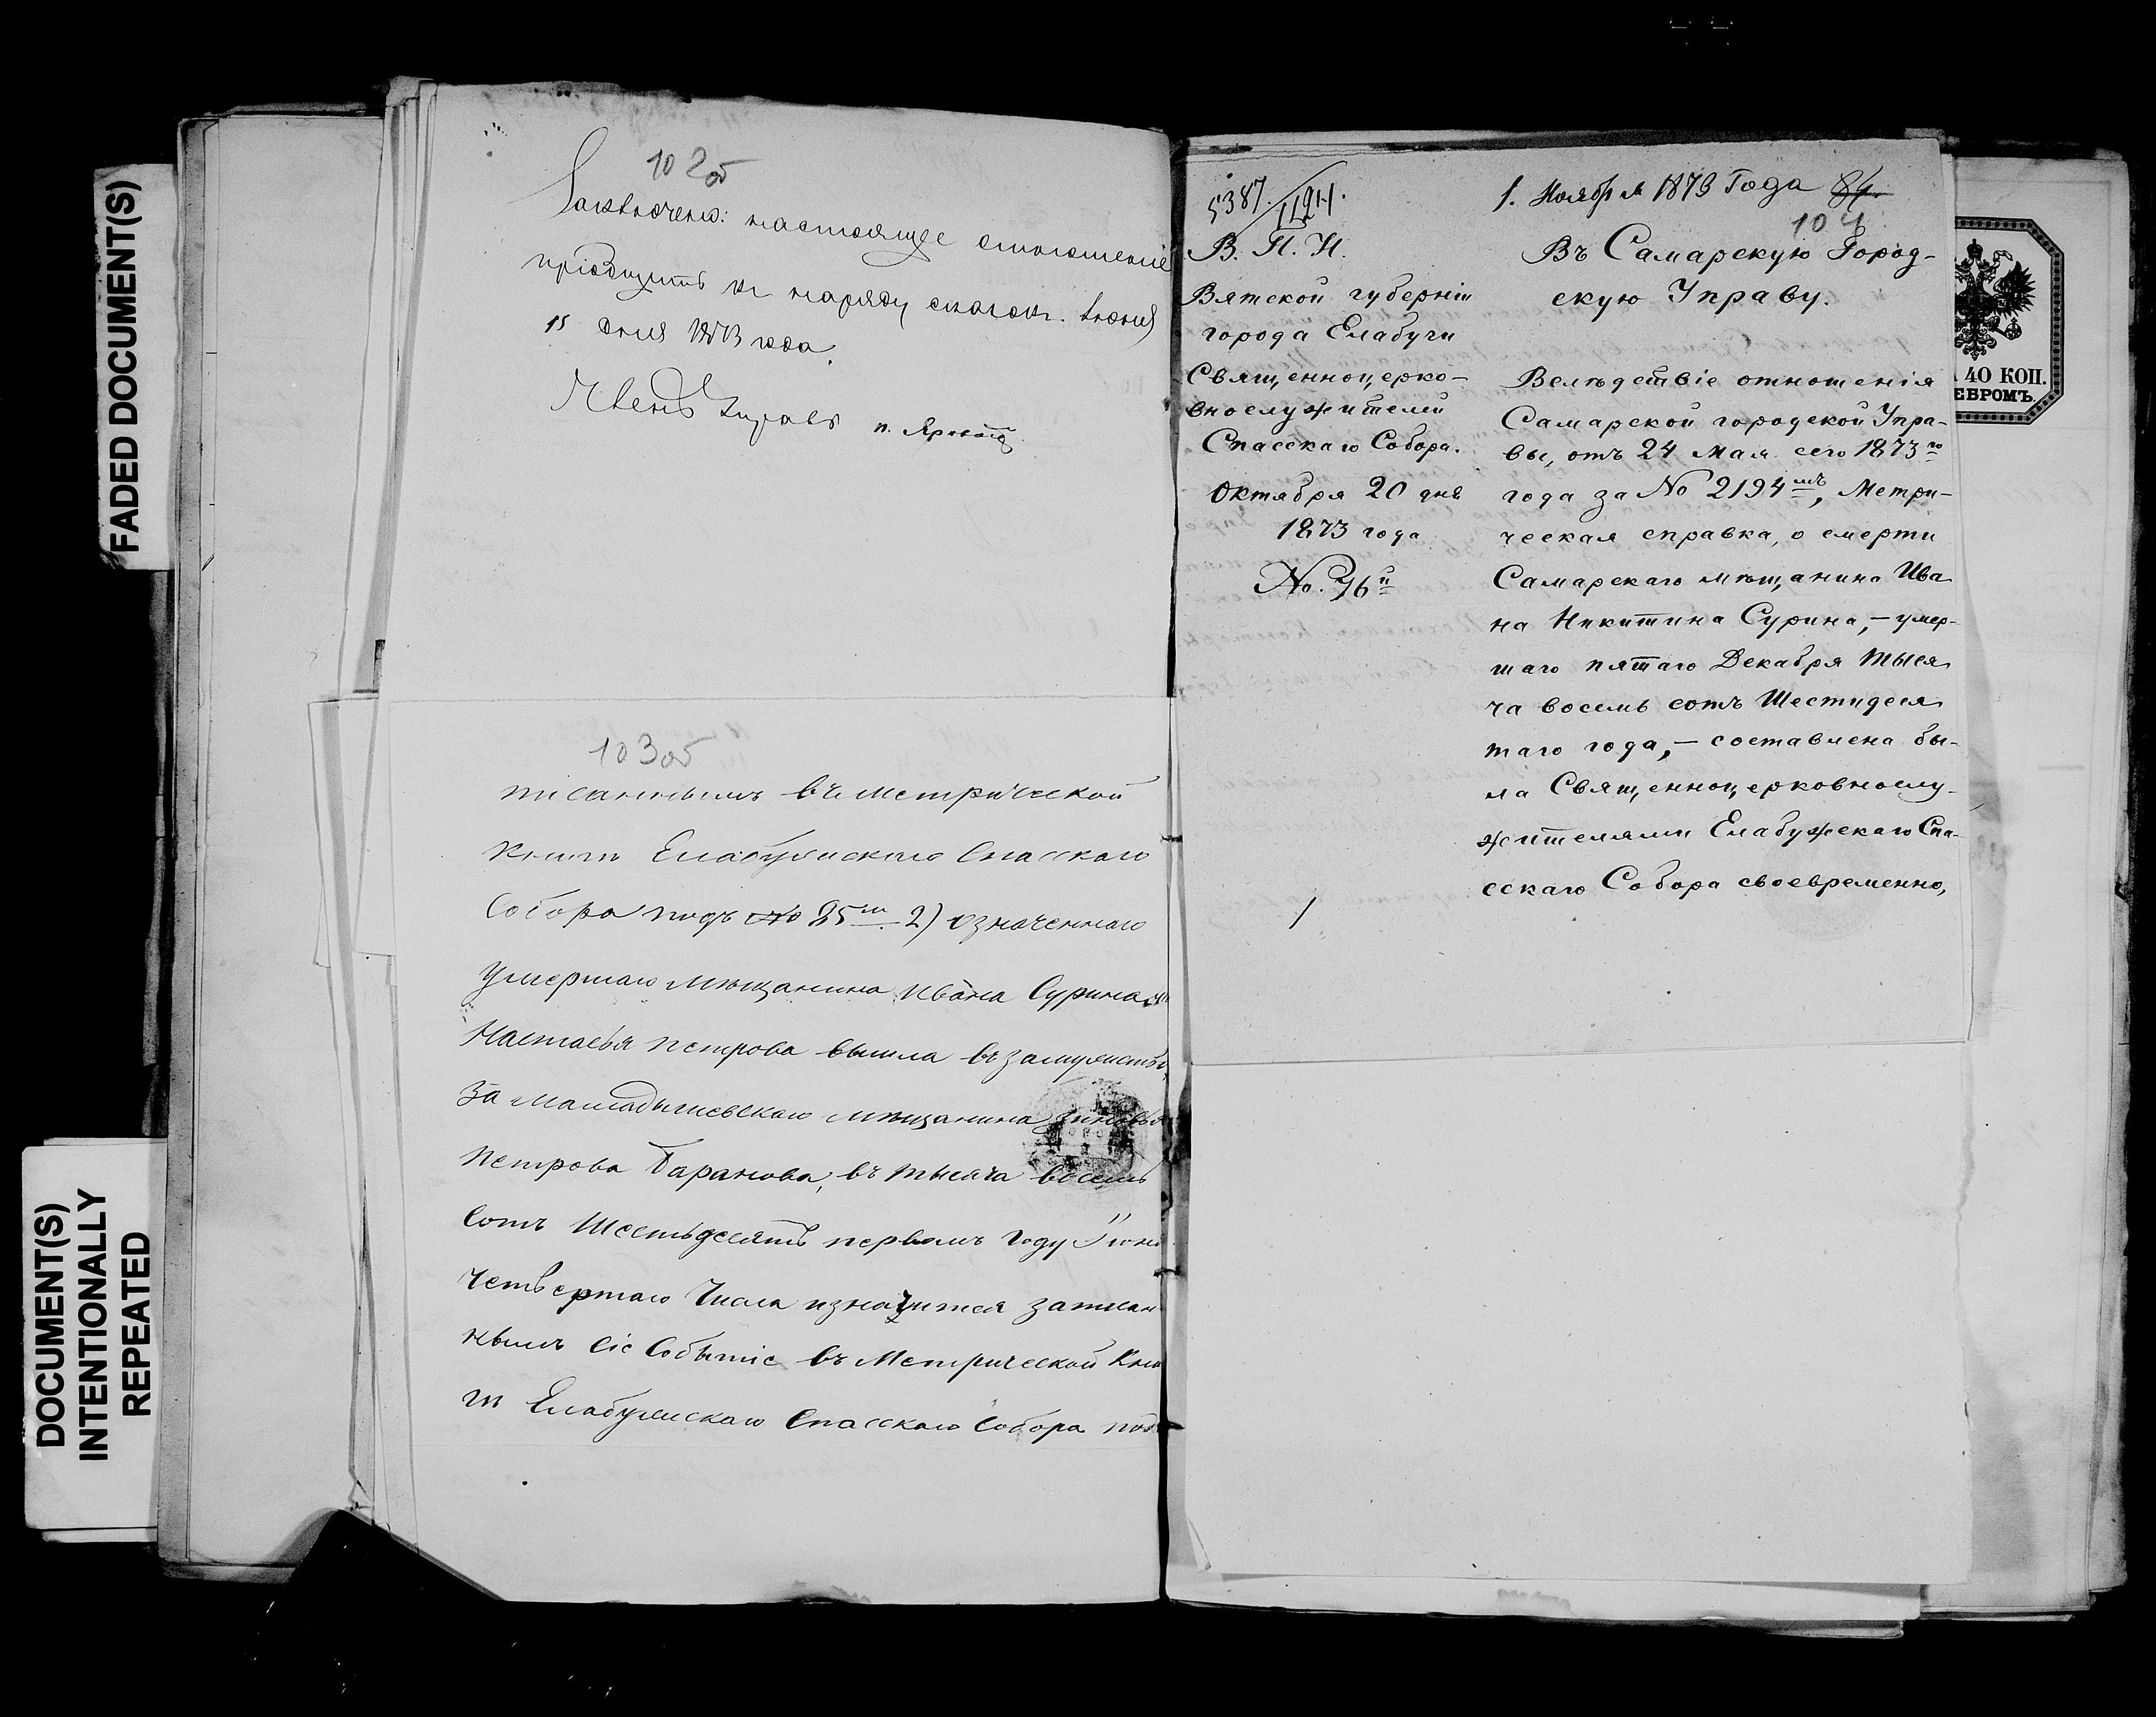 FADED DOCUMENT(S)
DOCUMENT(S)
INTENTIONALLY
REPEATED
102об
Заключено: настоящее отношеніе
пріобщить къ наряду сказокъ. Іюня
15 дня 1873 года.
Членъ Управы
103об
писаннымъ въ метрической
книгѣ Елабужскаго Спасскаго
Собора подъ № 85м. 2) означеннаго
умершаго мѣщанина Ивана Сурина
Настасья Петрова вышла въ замужство
за Мамадышевскаго мѣщанина Зиновья
Петрова Баранова, въ тысяча восемь
сотъ шестьдесятъ первомъ году Іюня
четвертаго числа и значится записан
нымъ сіе событіе въ Метрической Кни
гѣ Елабужскаго Спасскаго Собора подъ
5387.
1. Ноября 1873 Года 84.
104
В. П. И.
Вятской губерніи
города Елабуги
Священноцерко-
внослужителей
Спасскаго Собора.
Октября 20 дня
1873 года
No. 76й
Въ Самарскую Город-
скую Управу.
Вслѣдствіе отношенія
Самарской городской Упра-
вы, отъ 24 Мая сего 1873го
года за No 2194мъ, Метри-
ческая справка, о смерти
Самарскаго мѣщанина Ива
на Никитина Сурина, – умер-
шаго пятаго Декабря тыся
ча восемь сотъ Шестидеся
таго года, – составлена бы-
ла Священноцерковнослу-
жителями Елабужскаго Спа-
сскаго Собора своевременно,
40 КОП.
ЕБРОМЪ.